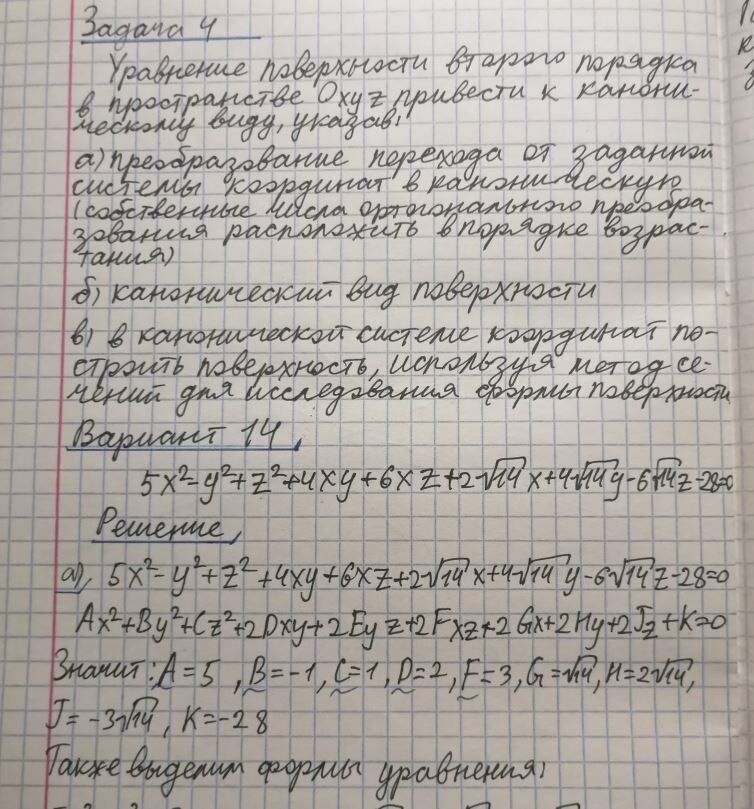 Задача 4
Уравнение поверхности второго порядка
в пространстве Oxyz привести к канони-
ческому виду, указав:
а) преобразование перехода от заданной
системы координат в каноническую
(собственные числа ортогонального преобра-
зования расположить в порядке возрас-
тания)
б) канонический вид поверхности
в) в канонической системе координат по-
строить поверхность, используя метод се-
чений для исследования формы поверхности
Вариант 14
5x²-y²+z²+4xy+6xz+2√14x+4√14y-6√14z-28=0
Решение,
а), 5x²-y²+z²+4xy+6xz+2√14x+4√14y-6√14z-28=0
Ax²+By²+Cz²+2Dxy+2Eyz+2Fxz+2Gx+2Hy+2Jz+K=0
Значит: A=5, B=-1, C=1, D=2, F=3, G=√14, H=2√14,
J=-3√14, K=-28
Также выделим формы уравнения: